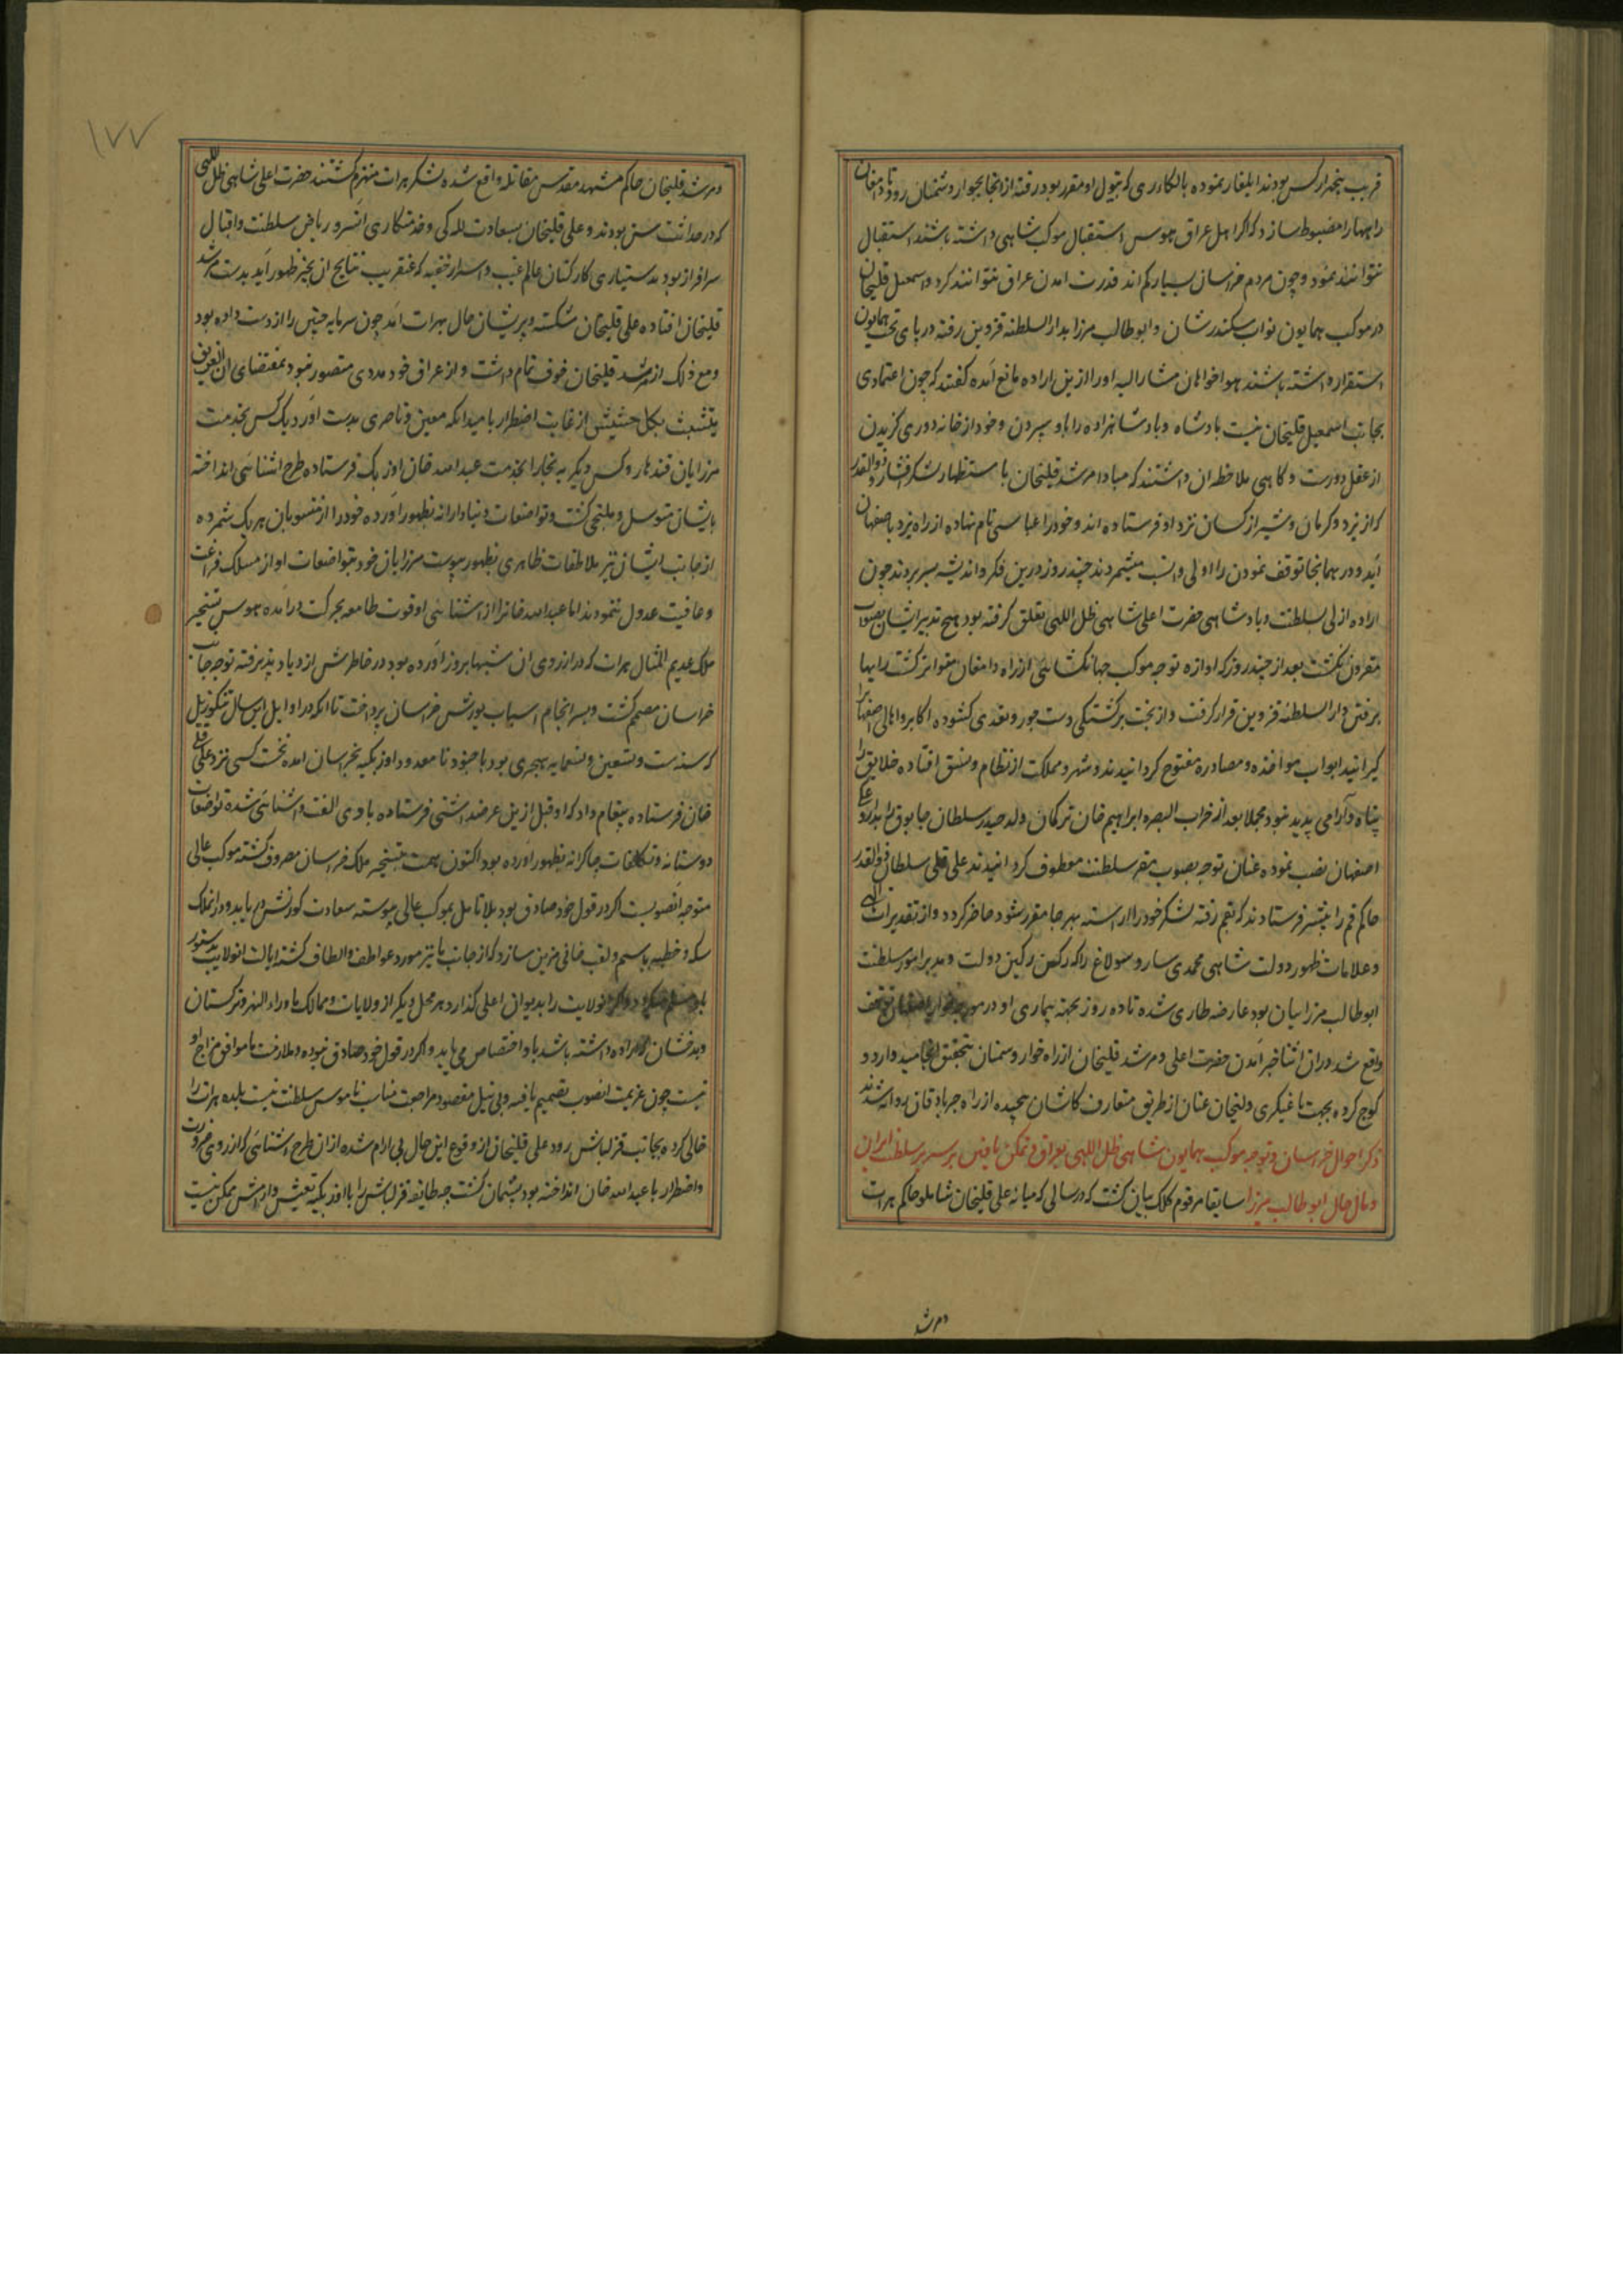 قریب پنجهزار کس بودند ایلغار نموده بالکادری که تیول او مقرر بود رفته از انجا بجوار و سمنان رود تا دامغان
راهها را مضبوط سازد که اکر اهل عراق هوس استقبال موکب شاهی داشته باشند استقبال
نتوانند نمود و چون مردم خراسان بسیار کم اند قدرت امدن عراق نتوانند کرد و اسمعیل قلیخان
در موکب همایون نواب سکندرشان و ابوطالب میرزا بدار السلطنه قزوین رفته در پای تخت همایون
استقرار داشته باشند هواخواهان مشار الیه او را ازین اراده مانع آمده کفتند که چون اعتمادی
بجانب اسمعیل قلیخان نیست پادشاه و پادشاهزاده را باو سپردن و خود از خانه دوری کزیدن
از عقل دورست و کاهی ملاحظه ان داشتند که مبادا مرشد قلیخان باستظهار لشکر افشار و ذوالقدر
که از یزد و کرمان و شیراز کسان نزد او فرستاده اند و خود را عباسی نام نهاده از راه یزد باصفهان
آید و در همانجا توقف نمودن را اولی و انسب میشمردند چند روز درین فکر و اندیشه بسر بردند چون
اراده ازلی بسلطنت و پادشاهی حضرت اعلی شاهی ظل اللهی تعلق کرفته بود هیچ تدبیر ایشان بصواب
مقرون نکشت بعد از چند روز که اوازه توجه موکب جهانکشائی از راه دامغان متواتر کشت رایها
برفتن دار السلطنه قزوین قرار کرفت و از بخت برکشتکی دست جور و تعدی کشوده اکابر و اهالی اصفهانرا
کیرانید ابواب مواخذه و مصادره مفتوح کردانیدند و شهر و مملکت از نظام و نسق افتاده خلایق را
پناه و آرامی پدید نبود مجملا بعد از خراب البصره ابراهیم خان ترکمان ولد حیدر سلطان جابوق را بدارو
اصفهان نصب نموده عنان توجه بصوب مقر سلطنت معطوف کردانیدند علی قلی سلطان ذوالقدر
حاکم قم را پیشتر فرستادند که بقم رفته لشکر خود را اراسته بهر جا مقرر شود حاضر کردد و از تقدیرات الهی
و علامات ظهور دولت شاهی محمدی سارو سولاغ را که رکن رکین دولت و مدبر امور سلطنت
ابوطالب میرزائیان بود عارضه طاری شده تا ده روز بجهته بیماری او در مورچه خوار اصفهان توقف
واقع شد در ان اثنا خبر آمدن حضرت اعلی و مرشد قلیخان از راه خوار و سمنان بتحقیق انجامید و اردو
کوچ کرده بجهت یاغیکری ولیجان عنان از طریق متعارف کاشان پیچیده از راه جربادقان روانه شدند
ذکر احوال خراسان و توجه موکب همایون شاهی ظل اللهی بعراق و تمکن یافتن بر سریر سلطنت ایران
و مآل حال ابوطالب میرزا سابقا مرقوم کلک بیان کشت که در سالی که میانه علی قلیخان شاملو حاکم هرات
و مرشد
۱۷۷
و مرشد قلیخان حاکم مشهد مقدس مقاتله واقع شده لشکر هرات منهزم کشتند حضرت اعلی شاهی ظل اللهی
که در حداثت سن بودند و علی قلیخان بسعادت للـه کی و خدمتکاری انسرو ریاض سلطنت و اقبال
سرافراز بود بدستیاری کارکنان عالم غیب و اسرار خفیه که عنقریب نتایج ان بحیز ظهور آید بدست مرشد
قلیخان افتاده علی قلیخان شکسته و پریشان حال بهرات آمد چون سرمایه چنین را از دست داده بود
و مع ذلک از مرشد قلیخان خوف تمام داشت و از عراق خود مددی متصور نبود بمقتضای ان الغریق
یتشبث بکل حشیش از غایت اضطرار بامید انکه معین و ناصری بدست آورد یک کس بخدمت
مرزایان قندهار و کس دیکر به بخارا بخدمت عبدالله خان اوزبک فرستاده طرح اشنائی انداخته
بایشان متوسل و ملتجی کشت و تواضعات دنیادارانه بظهور آورده خود را از منسوبان هر یک شمرده
از جانب ایشان نیز ملاطفات ظاهری بظهور پیوست مرزایان خود بتواضعات او از مسلک فراغت
و عافیت عدول ننمودند اما عبدالله خانرا از اشنائی او قوت طامعه بحرکت درآمده هوس تسخیر
ملک عدیم المثال هرات که در ارزوی ان شبها بروز آورده بود در خاطرش ازدیاد پذیرفته توجه جانب
خراسان مصمم کشت و بسرانجام اسباب یورش خراسان پرداخت تا انکه در اوایل این سال تنکوزئیل
که سنه ست و تسعین و تسعمایه هجری بود با جنود نامعدود اوزبکیه بخراسان امده نخست کسی نزد علی قلی
خان فرستاده پیغام داد که او قبل ازین عرضه داشتی فرستاده با وی الفت و اشنائی شده تواضعات
دوستانه و تکلفات چاکرانه بظهور آورده بود اکنون همت بتسخیر ملک خراسان مصروف کشته موکب عالی
متوجه انصوبست اکر در قول خود صادق بود بلا تامل بموکب عالی پیوسته سعادت کورنش دریابد و در انملک
سکه و خطبه باسم و لقب خانی مزین سازد که از جانب ما نیز مورد عواطف و الطاف کشته ایالت انولایت بدستور
باو مسلم میکردد و اکر انولایت را بدیوان اعلی کذارد هر محل دیکر از ولایات و ممالک ماوراء النهر و ترکستان
و بدخشان که اراده داشته باشد باو اختصاص می یابد و اکر در قول خود صادق نبوده و ملازمت ما موافق مزاج او
نیست چون عزیمت انصوب تصمیم یافته و بی نیل مقصود مراجعت مناسب ناموس سلطنت نیست بلده هرات را
خالی کرده بجانب قزلباش رود علی قلیخان از وقوع این حال بی ارام شده از ان طرح اشنائی که از روی ضرورت
و اضطرار با عبدالله خان انداخته بود پشیمان کشت چه طایفه قزلباش را با اوزبکیه تعیش و ارامش ممکن نیست